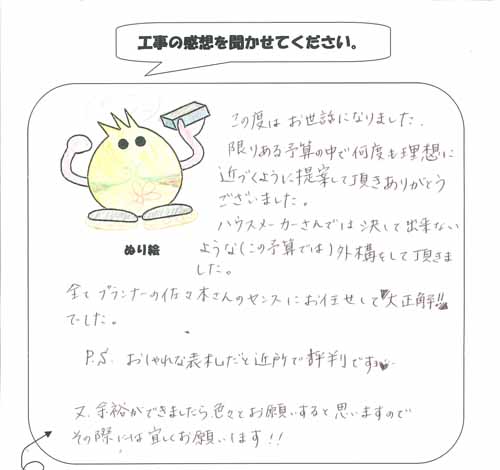 工事の感想を聞かせてください。
この度はお世話になりました。
限りある予算の中で何度も理想に
近づくように提案して頂きありがとう
ございました。
ハウスメーカーさんでは決して出来ない
ような(この予算では)外構をして頂きま
した。
ぬり絵
全てプランナーの佐々木さんのセンスにお任せして"大正解!!"
でした。
P.S. おしゃれな表札だと近所で評判です
又、余裕ができましたら色々とお願いすると思いますので
その際には宜しくお願いします!!